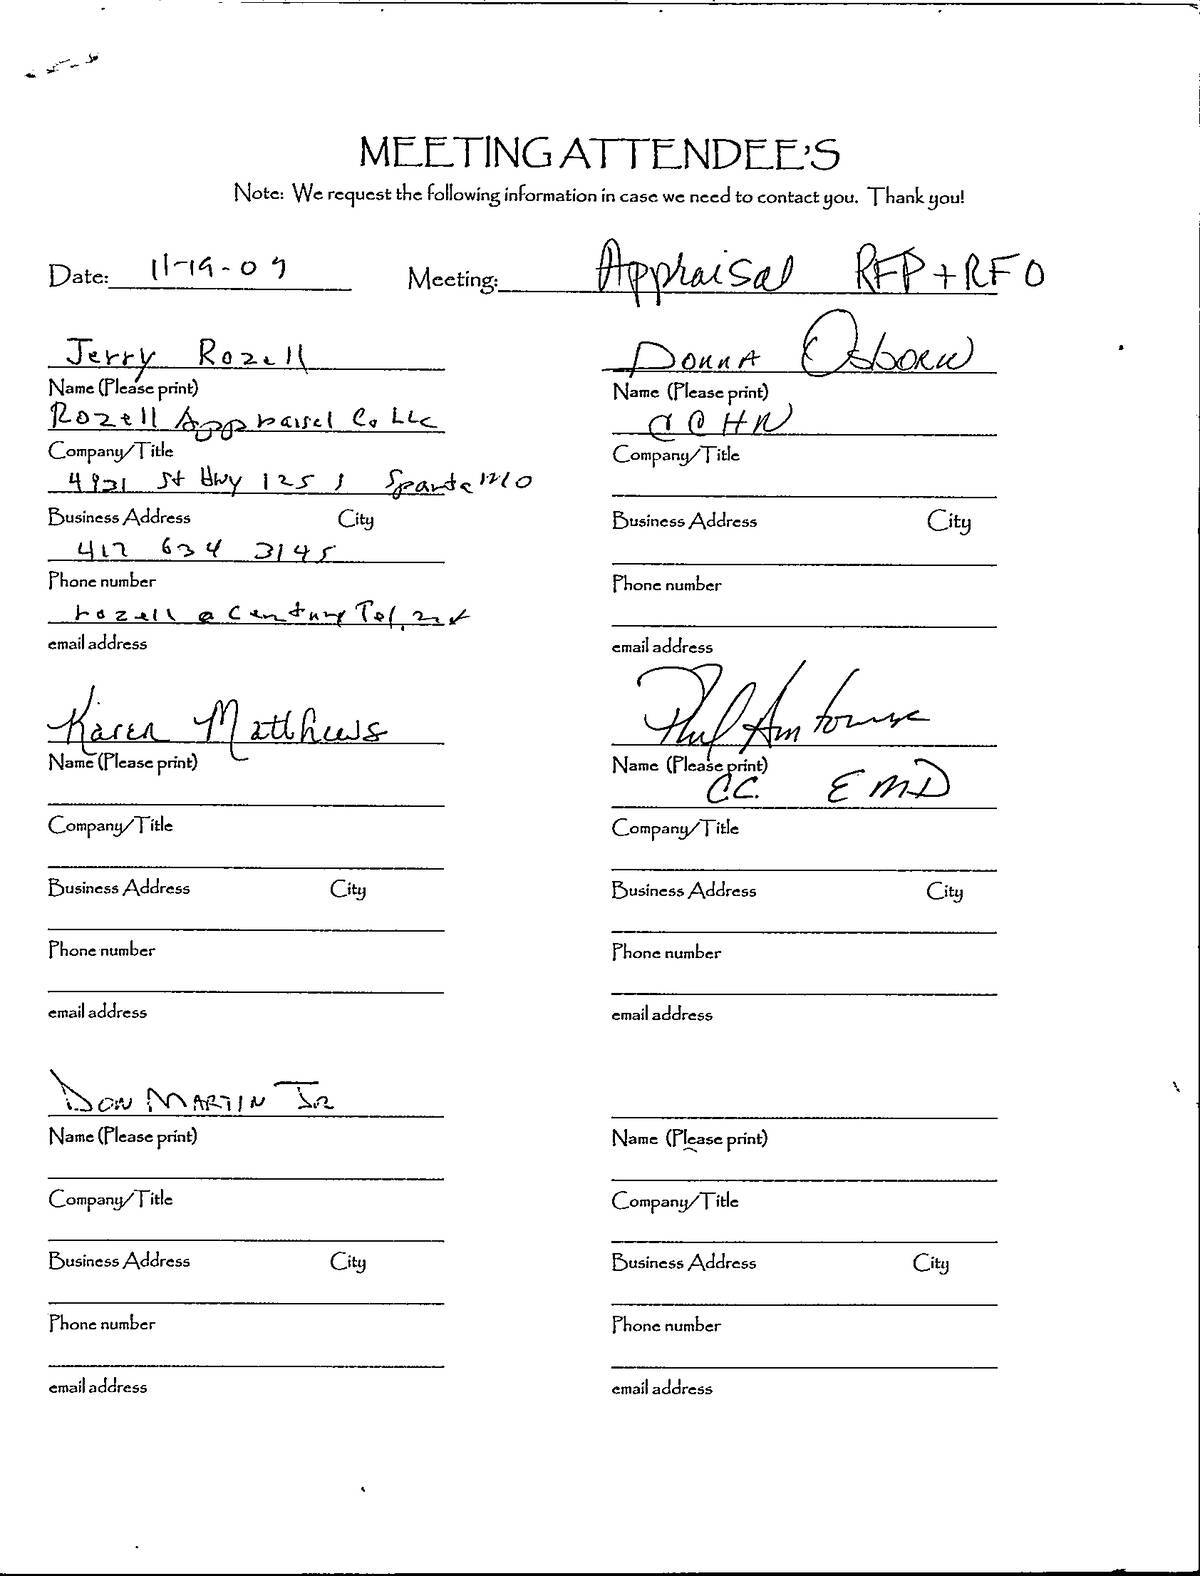 MEETING ATTENDEE'S
Note: We request the following information in case we need to contact you. Thank you!
Date: 11-19-09 Meeting: Appraisal RFP + RFQ
Jerry Rozell
Name (Please print)
Rozell Appraisal Co LLC
Company/Title
4931 St Hwy 125 Sparta MO
Business Address City
417 634 3145
Phone number
rozell@CenturyTel.net
email address
Donna Osborn
Name (Please print)
Company/Title
Business Address City
Phone number
email address
Karen Matthews
Name (Please print)
Company/Title
Business Address City
Phone number
email address
Phil Amtower
Name (Please print)
CC. EMD
Company/Title
Business Address City
Phone number
email address
Don Martin Jr
Name (Please print)
Company/Title
Business Address City
Phone number
email address
Name (Please print)
Company/Title
Business Address City
Phone number
email address